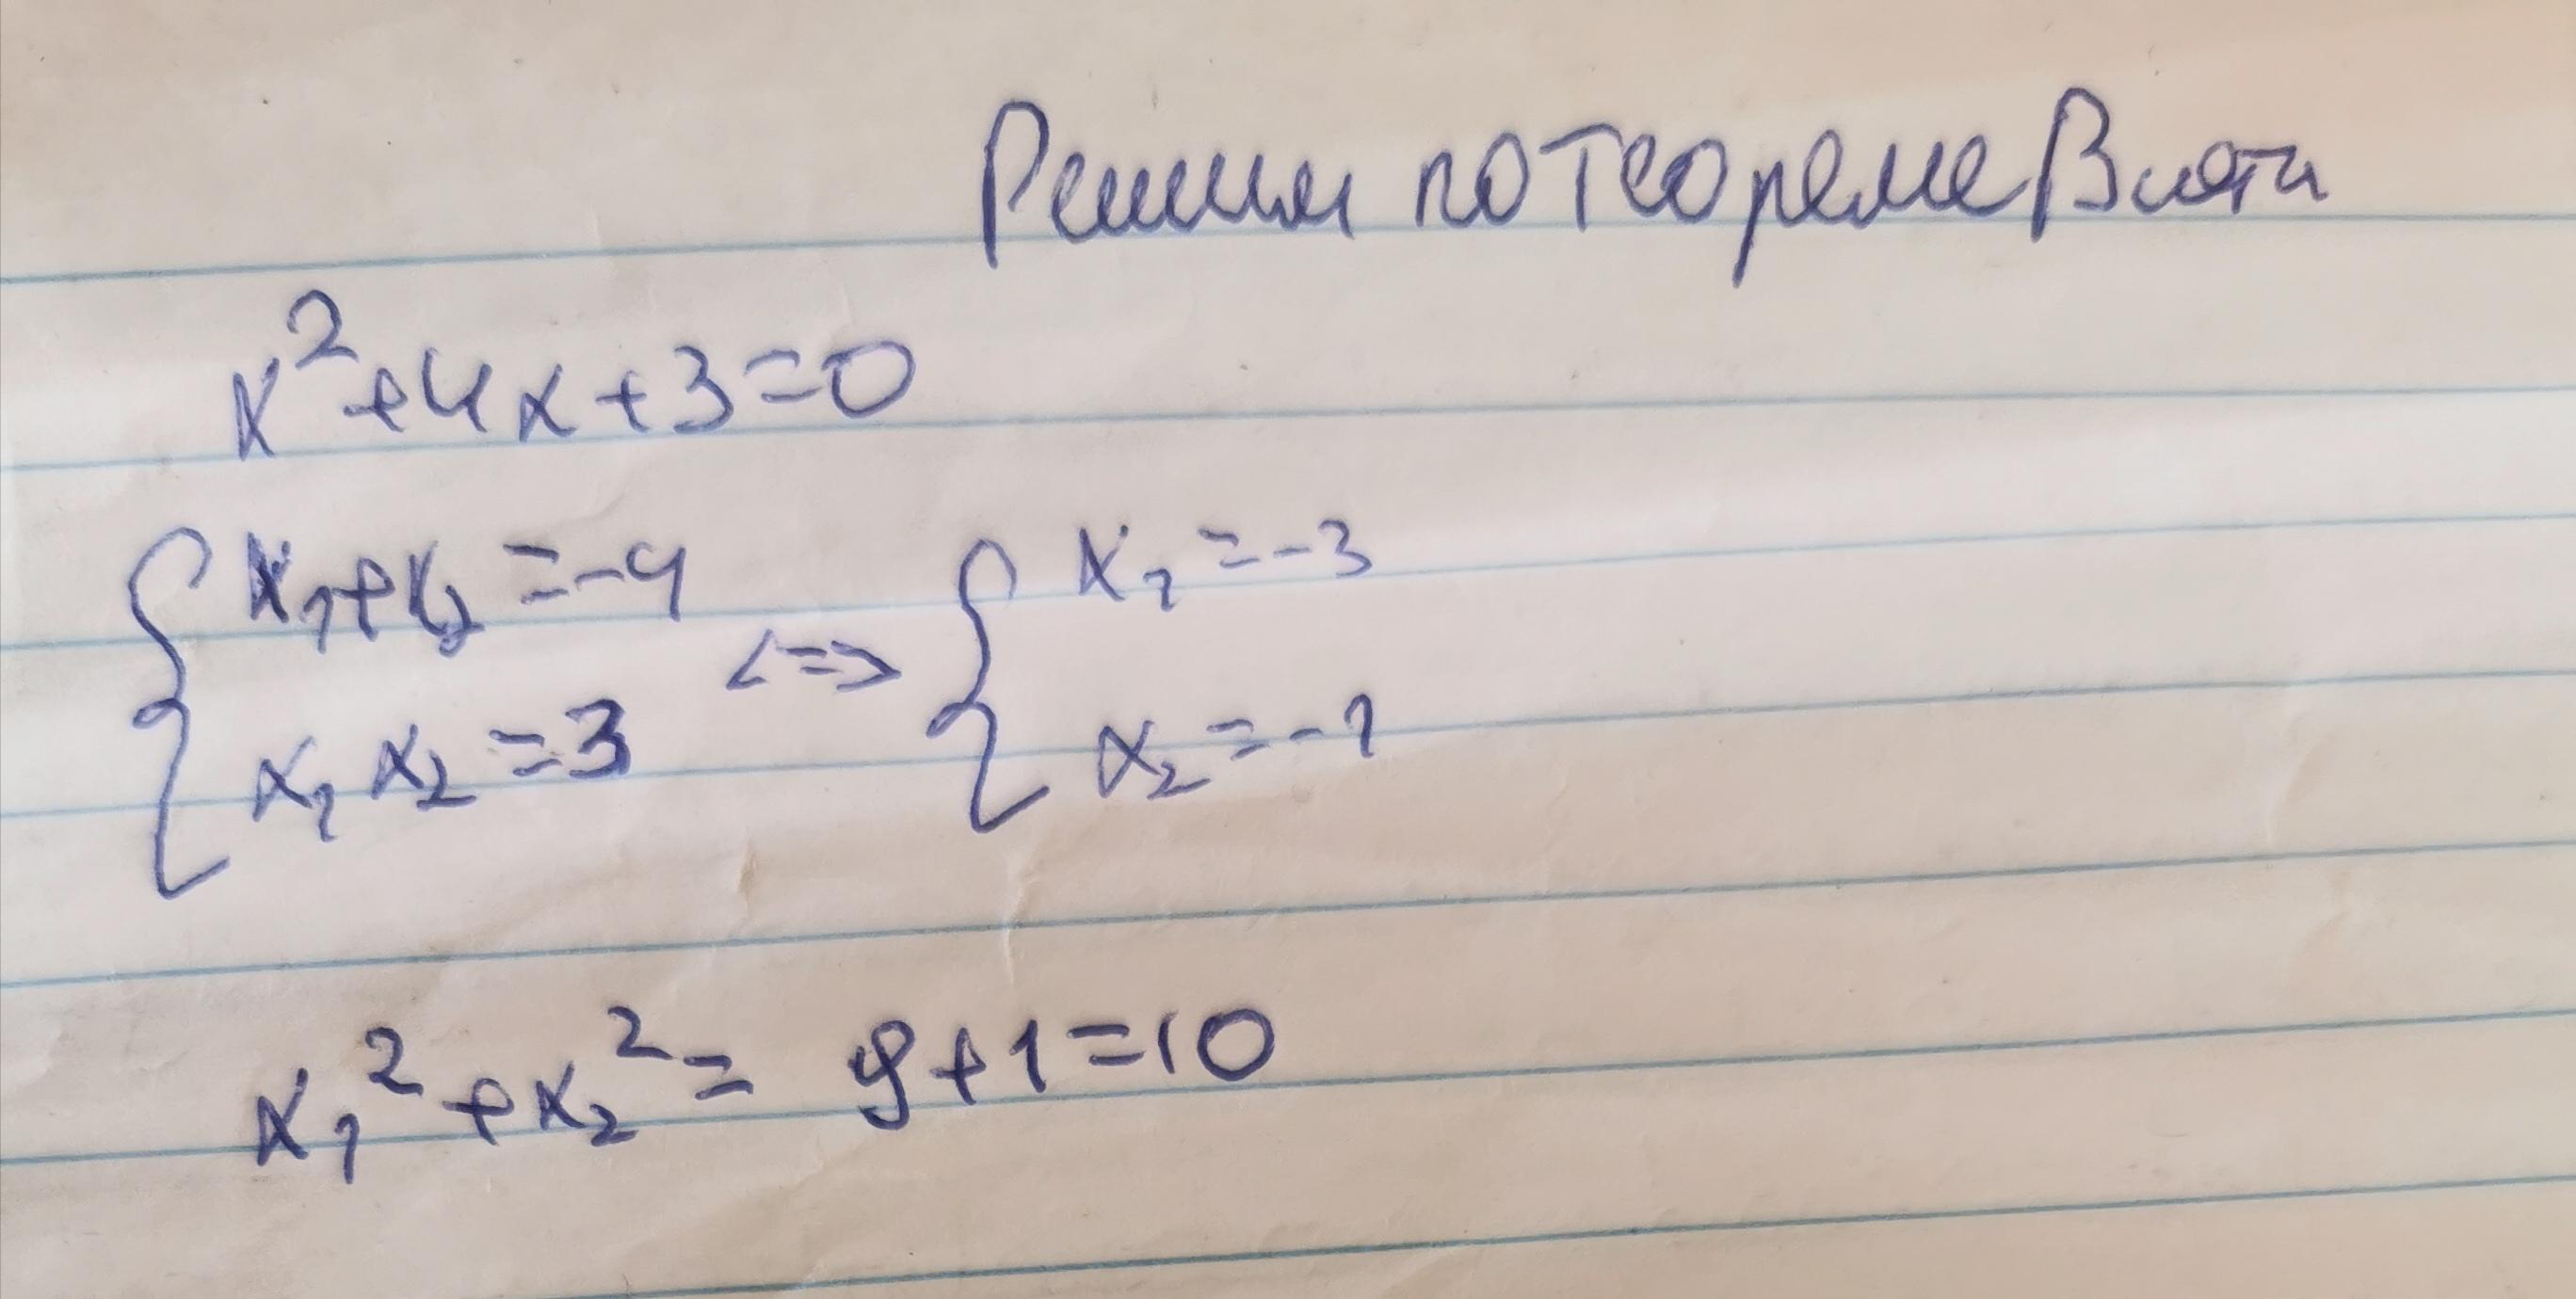 Решим по теореме Виета
x²+4x+3=0
{ x₁+x₂=-4 <=> { x₁=-3
x₁x₂=3 x₂=-1
x₁²+x₂²= 9+1=10